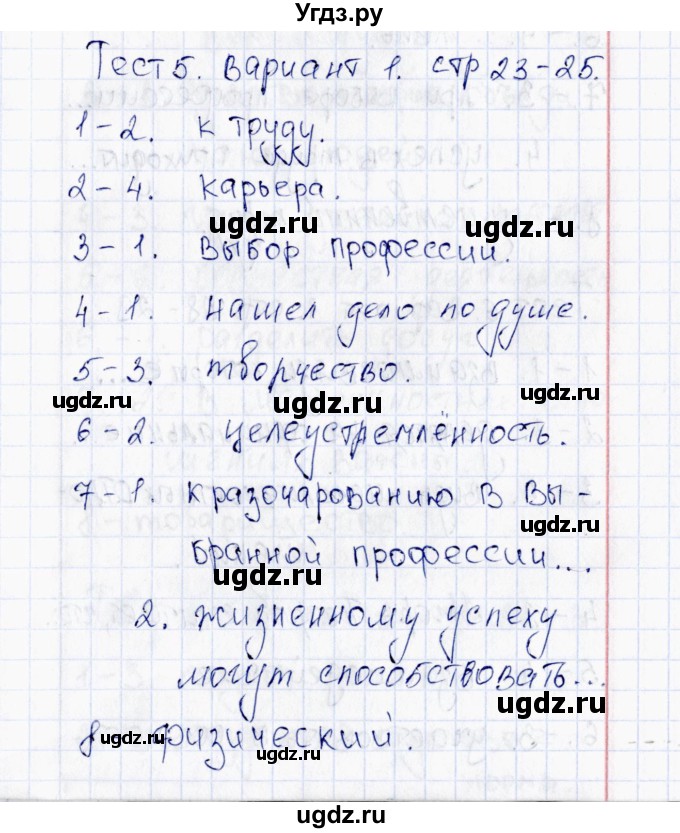 Угдз.ру
Тест 5. Вариант 1. стр 23-25.
1-2. к труду.
2-4. карьера.
ugdz.ru
ugdz.ru
3-1. Выбор профессии.
4-1. нашел дело по душе.
ugdz.ru
5-3. творчество.
ugdz.ru
ugdz.ru
6-2. целеустремлённость.
ugdz.ru
7-1. к разочарованию в вы-
ugdz.ru
бранной профессии...
ugdz.ru
2. жизненному успеху
могут способствовать...
ugdz.ru
8- физический.
ugdz.ru
ugdz.ru
ugdz.ru